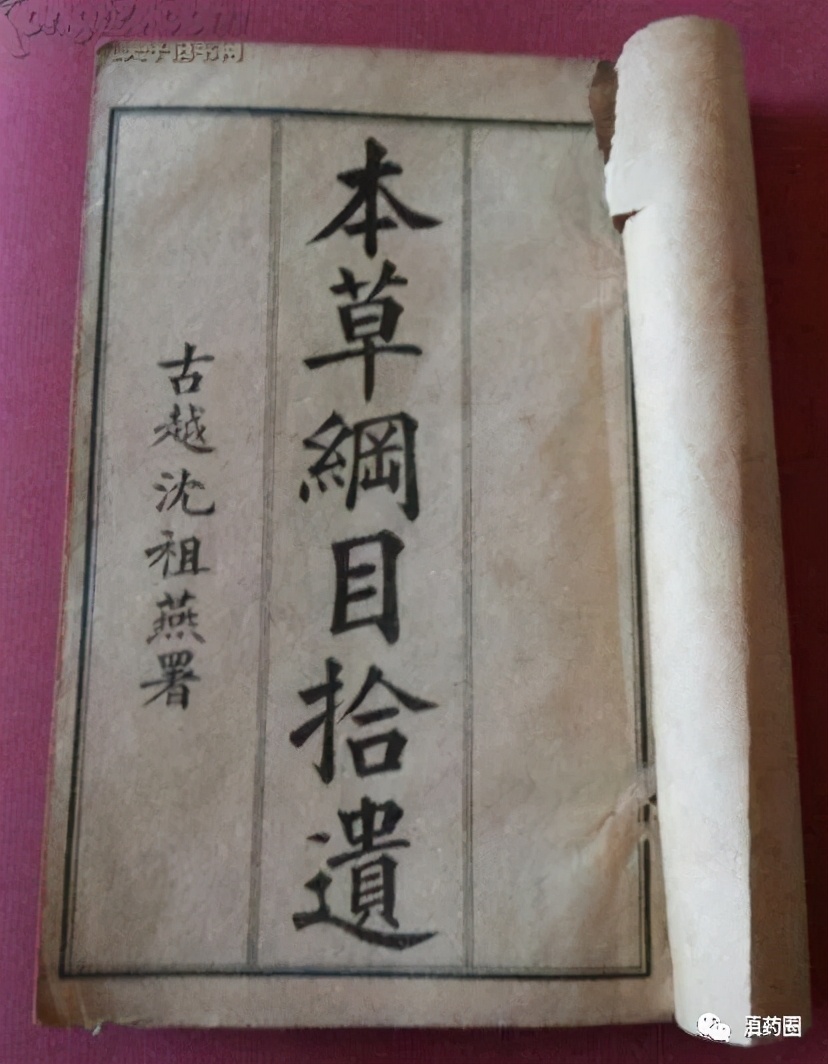 本草綱目拾遺
古越沈祖燕署